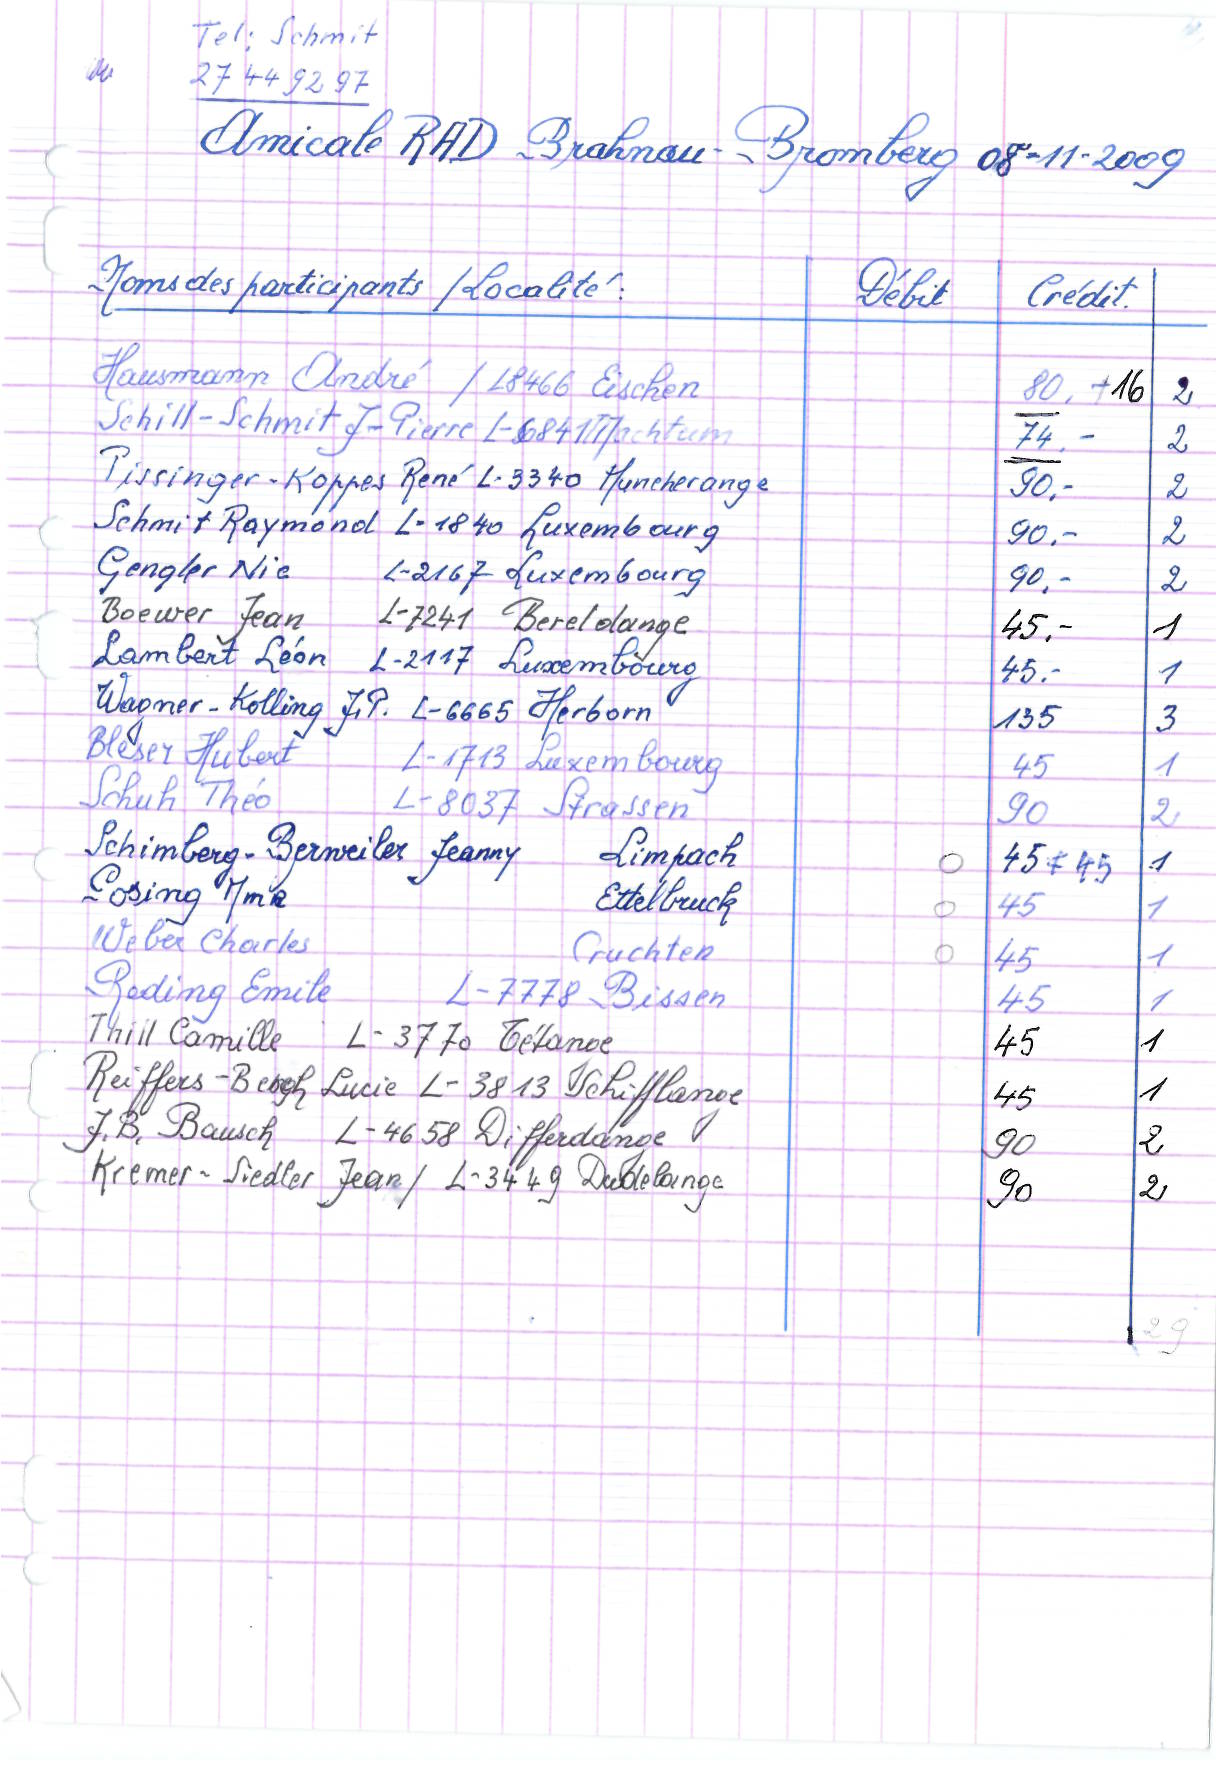 Tel: Schmit
27 44 92 97
Amicale RAD Brahnau-Bromberg 08-11-2009
Noms des participants / Localité: Débit Crédit.
Hausmann André / L8466 Eischen 80. +16 2
Schill-Schmit J-Pierre L-6841 Machtum 74.- 2
Pissinger-Koppes René L-3340 Huncherange 90.- 2
Schmit Raymond L-1840 Luxembourg 90.- 2
Gengler Nic L-2167 Luxembourg 90.- 2
Boewer Jean L-7241 Bereldange 45.- 1
Lambert Léon L-2117 Luxembourg 45.- 1
Wagner-Kolling J.P. L-6665 Herborn 135 3
Bleser Hubert L-1713 Luxembourg 45 1
Schuh Théo L-8037 Strassen 90 2
Schimberg-Berweiler Jeanny Limpach 45 + 45 1
Posing Mme Ettelbruck 45 1
Weber Charles Cruchten 45 1
Reding Emile L-7778 Bissen 45 1
Thill Camille L-3770 Tétange 45 1
Reiffers-Bergh Lucie L-3813 Schifflange 45 1
J.B. Bausch L-4658 Differdange 90 2
Kremer-Siedler Jean / L-3449 Dudelange 90 2
29